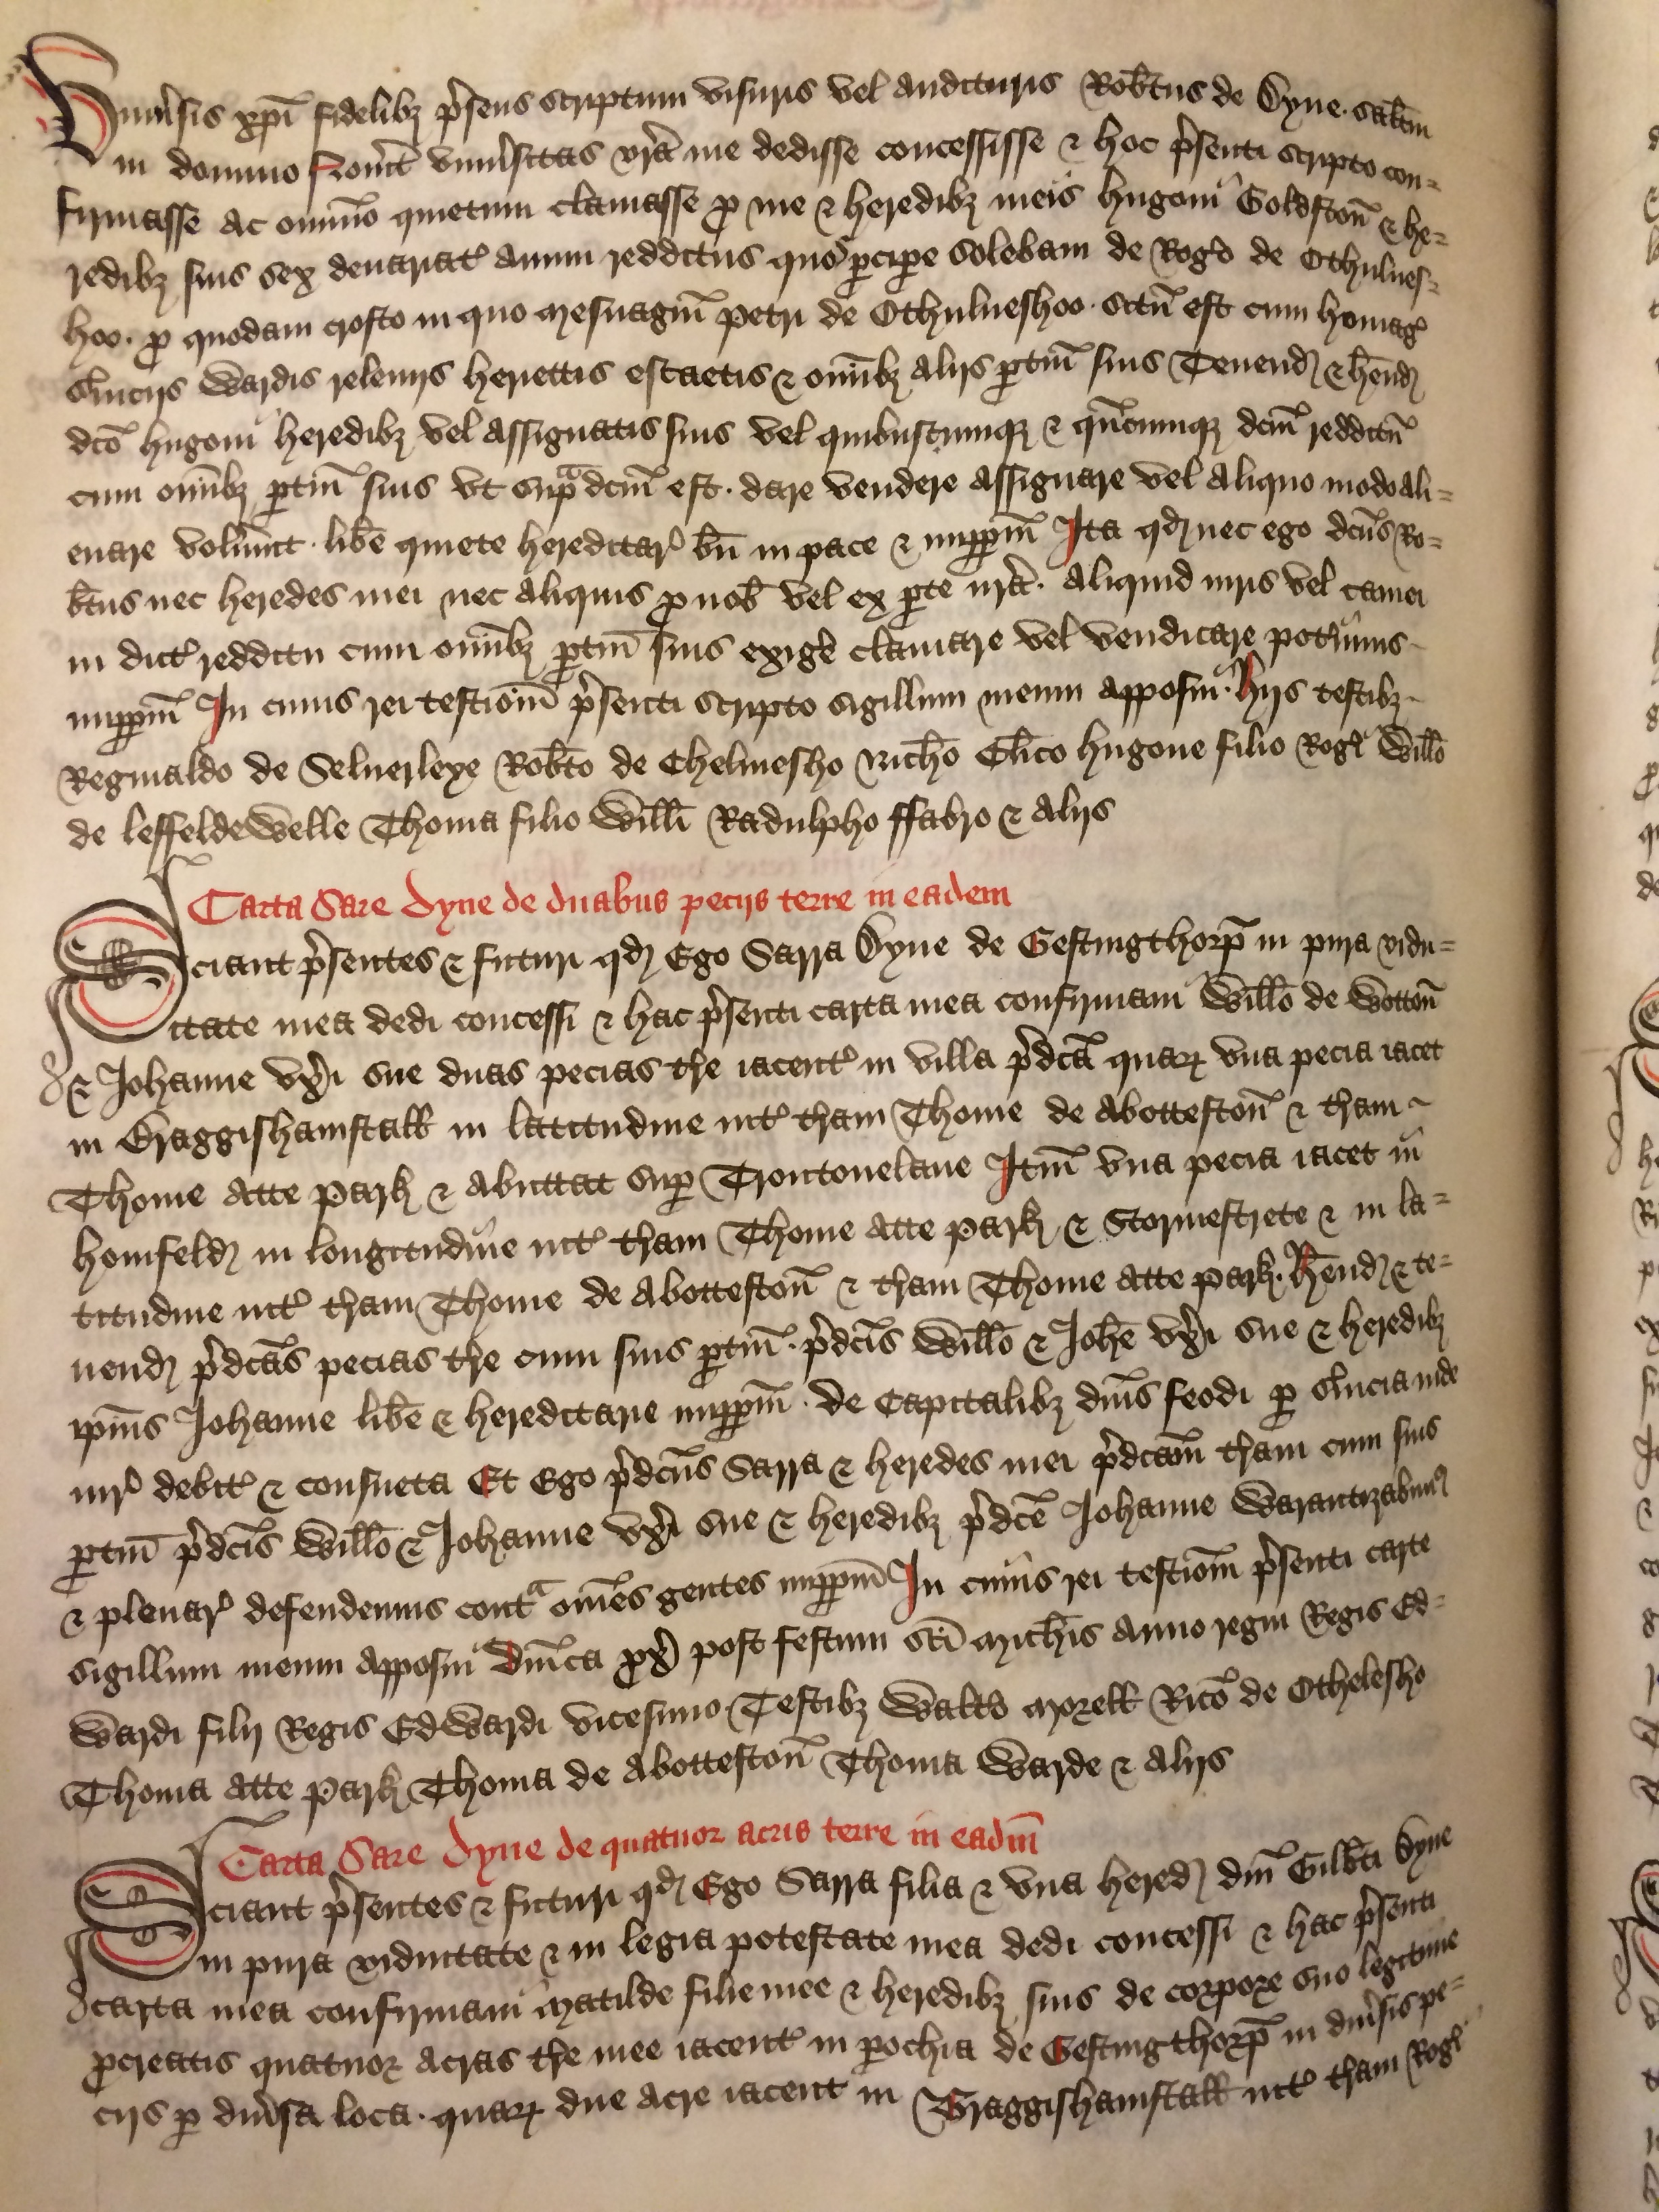 Vniu̾sis xp̄i fidelibȝ p̾sens scriptum visuris vel audituris Rob̄tus de Dyne. sal̄tm
in domino Nou̾it vniu̾sitas vr̄a me dedisse concessisse ⁊ hoc p̾senti scripto con=
firmasse ac omnīo quietum clamasse ꝓ me ⁊ heredibȝ meis hugoni Goldston̄ ⁊ he=
redibȝ suis sex denariat̾ annui redditus quos ꝑcipe solebam de Rog̾o de Othulues=
hoo. ꝓ quodam crofto in quo mesuagiū petri de Othulueshoo. situ̅ est cum homag̾
s̾uicijs wardis releuijs heriettis escaetis ⁊ om̄ibȝ alijs ꝑtin̄ suis Tenend̾ ⁊ h̄end̾
dc̄o hugoni heredibȝ vel assignatis suis vel quibuscumqȝ ⁊ qn̄cumqȝ dcm̄ redditū
cum om̄ibȝ ꝑtin̄ suis vt supᵃdcm̄ est. dare vendere assignare vel aliquo modo ali=
enare volu̾int. lib̄e quiete hereditar̾ bn̄ in pace ⁊ inꝑpm̄ Ita qd̾ nec ego dcūs Ro=
b̄tus nec heredes mei nec aliquis ꝓ nob̄ vel ex ꝑte nr̄a. aliquid iuris vel clamei
in dict̾ redditu cum om̄ibȝ ꝑtin̄ suis exig̾e clamare vel vendicare pot̾imus
inꝑpm̄ In cuius rei testiom̄ p̾senti scripto sigillum meum apposui. hijs testibȝ
Reginaldo de Seluerleye Rob̄to de Cheluesho Rich̄o Cl̄ico hugone filio Rog̾i Will̄o
de leffeldewelle Thoma filio Will̄i Radulpho ffabro ⁊ alijs
Carta Sare Dyne de duabus pecijs terre in eadem
Sciant p̾sentes ⁊ futuri qd̾ Ego Sarra Dyne de Gestingthorp̄ in pura vidu=
itate mea dedi concessi ⁊ hac p̾senti carta mea confirmaui Will̄o de Wotton̄
⁊ Johanne vx̾i sue duas pecias t̾re iacent̾ in villa p̾dc̄a quarꝝ vna pecia iacet
in Graggishamstall in latitudine int̾ t̾ram Thome de Abotteston̄ ⁊ t̾ram
Thome atte park ⁊ abuttat sup Trontonelane Itm̄ vna pecia iacet in
homfeld̾ in longitudine int̾ t̾ram Thome atte park ⁊ Stormestrete ⁊ in la=
titudine int̾ t̾ram Thome de Abotteston̄ ⁊ t̾ram Thome atte park. H̄end̾ ⁊ te=
nend̾ p̾dc̄as pecias t̾re cum suis ꝑtin̄. p̾dc̄is Will̄o ⁊ Joh̄e vx̾i sue ⁊ heredibȝ
ipīus Johanne lib̄e ⁊ hereditarie inꝑpm̄. de Capitalibȝ dn̄is feodi ꝑ s̾uicia inde
iur̾ debit̾ ⁊ consueta Et Ego p̾dcūs Sarra ⁊ heredes mei p̾dcam̄ t̾ram cum suis
ꝑtin̄ p̾dc̄is Will̄o ⁊ Johanne vx̾i sue ⁊ heredibȝ p̾dc̄e Johanne Warantizabimꝰ
⁊ plenar̾ defendemus contᵃ om̄es gentes inꝑpm̄ In cuius rei testiom̄ p̾senti carte
sigillum meum apposui Dn̄ica ꝓx̾ post festum sc̄i mich̄is anno regni Regis Ed=
wardi filij Regis Edwardi vicesimo Testibȝ Walt̾o morell Ric̄o de Othelesho
Thoma atte park Thoma de Abotteston̄ Thoma Warde ⁊ alijs
Carta Sare Dyne de quatuor acris terre in eadm̄
Sciant p̾sentes ⁊ futuri qd̾ Ego Sarra filia ⁊ vna hered̾ dn̄i Gilb̄ti Dyne
in pura viduitate ⁊ in legia potestate mea dedi concessi ⁊ hac p̾senti
carta mea confirmaui Matilde filie mee ⁊ heredibȝ suis de corpore suo legitime
ꝓcreatis quatuor acras t̾re mee iacent̾ in ꝑochia de Gestingthorp̄ in diu̾sis pe=
cijs ꝑ diu̾sa loca. quarꝝ due acre iacent in Graggishamstall int̾ t̾ram Rog̾i